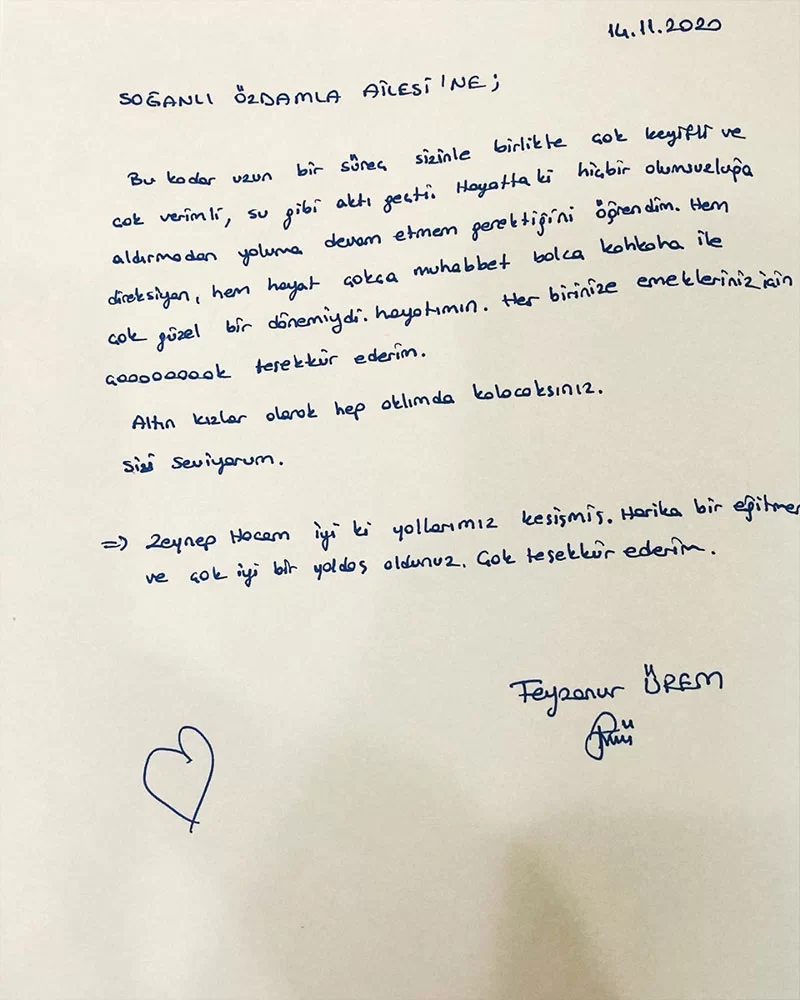 14.11.2020
SOĞANLI ÖZDAMLA AİLESİ'NE;
Bu kadar uzun bir süreç sizinle birlikte çok keyifli ve
çok verimli, su gibi aktı geçti. Hayattaki hiçbir olumsuzluğa
aldırmadan yoluma devam etmem gerektiğini öğrendim. Hem
direksiyon, hem hayat çokça muhabbet bolca kahkaha ile
çok güzel bir dönemiydi. hayatımın. Her birinize emekleriniz için
çooooooook teşekkür ederim.
Altın kızlar olarak hep aklımda kalacaksınız.
Sizi seviyorum.
=> Zeynep Hocam iyi ki yollarımız kesişmiş. Harika bir eğitmen
ve çok iyi bir yoldaş oldunuz. Çok teşekkür ederim.
Feyzanur ÜREM